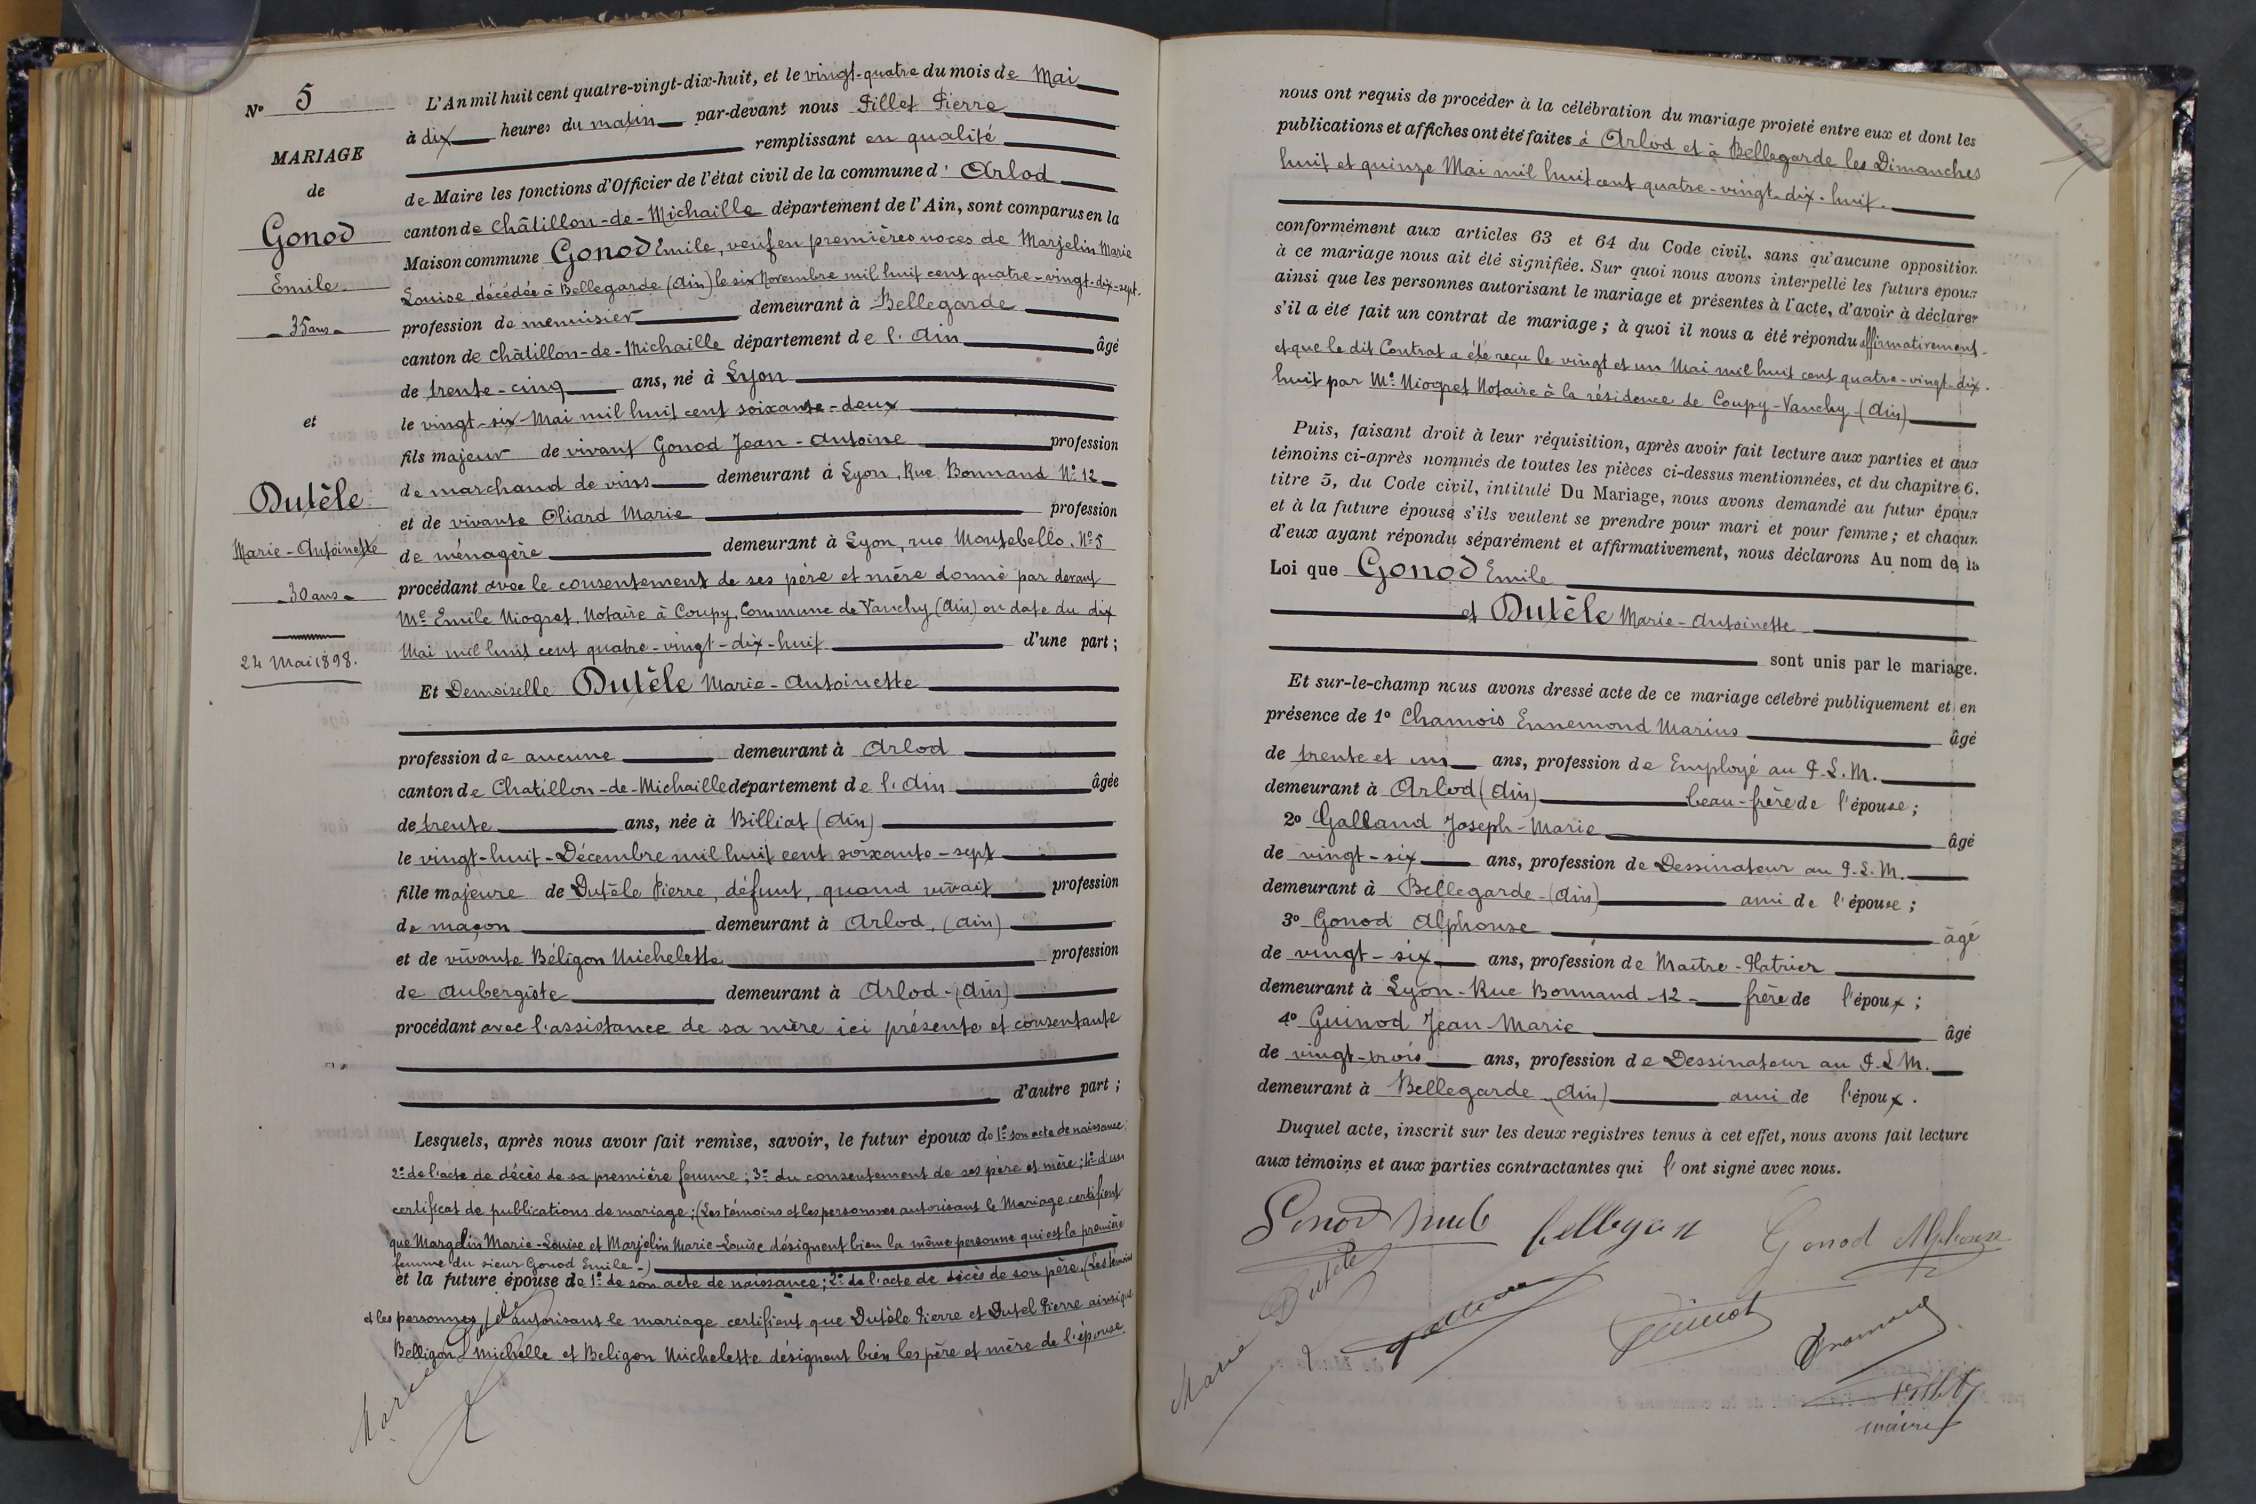 No 5
MARIAGE
de
Gonod
Emile
35 ans
et
Dutèle
Marie-Antoinette
30 ans
24 Mai 1898.
L'An mil huit cent quatre-vingt-dix-huit, et le vingt-quatre du mois de Mai
à dix heures du matin par-devant nous Fillet Pierre
remplissant en qualité
de Maire les fonctions d'Officier de l'état civil de la commune d' Arlod
canton de Châtillon-de-Michaille département de l'Ain, sont comparus en la
Maison commune Gonod Emile, veuf en premières noces de Marjelin Marie
Louise décédée à Bellegarde (Ain) le six Novembre mil huit cent quatre-vingt-dix-sept.
profession de menuisier demeurant à Bellegarde
canton de Châtillon-de-Michaille département de l'Ain âgé
de trente-cinq ans, né à Lyon
le vingt-six Mai mil huit cent soixante-deux
fils majeur de vivant Gonod Jean-Antoine profession
de marchand de vins demeurant à Lyon, Rue Bonnand No 12
et de vivante Oliard Marie profession
de ménagère demeurant à Lyon, rue Montebello, No 5
procédant avec le consentement de ses père et mère donné par devant
Me Emile Niogret, Notaire à Coupy, Commune de Vanchy (Ain) en date du dix
Mai mil huit cent quatre-vingt-dix-huit d'une part ;
Et Demoiselle Dutèle Marie-Antoinette
profession de aucune demeurant à Arlod
canton de Chatillon-de-Michaille département de l'Ain âgée
de trente ans, née à Billiat (Ain)
le vingt-huit-Décembre mil huit cent soixante-sept
fille majeure de Dutèle Pierre, défunt, quand vivait profession
de maçon demeurant à Arlod, (Ain)
et de vivante Béligon Michelette profession
de Aubergiste demeurant à Arlod-(Ain)
procédant avec l'assistance de sa mère ici présente et consentante
d'autre part ;
Lesquels, après nous avoir fait remise, savoir, le futur époux de 1o son acte de naissance;
2o de l'acte de décès de sa première femme ; 3o du consentement de ses père et mère ; 4o d'un
certificat de publications de mariage ; (Les témoins et les personnes autorisant le Mariage certifient
que Margelin Marie-Louise et Marjelin Marie-Louise désignent bien la même personne qui est la première
femme du sieur Gonod Emile-)
et la future épouse de 1o de son acte de naissance ; 2o de l'acte de décès de son père. (Les témoins
et les personnes autorisant le mariage certifient que Dutèle Pierre et Dutel Pierre ainsi que
Belligon Michelle et Beligon Michelette désignent bien les père et mère de l'épouse.
Marie
nous ont requis de procéder à la célébration du mariage projeté entre eux et dont les
publications et affiches ont été faites à Arlod et à Bellegarde les Dimanches
huit et quinze Mai mil huit cent quatre-vingt-dix-huit.
conformément aux articles 63 et 64 du Code civil, sans qu'aucune opposition
à ce mariage nous ait été signifiée. Sur quoi nous avons interpellé les futurs époux
ainsi que les personnes autorisant le mariage et présentes à l'acte, d'avoir à déclarer
s'il a été fait un contrat de mariage ; à quoi il nous a été répondu affirmativement
et que le dit Contrat a été reçu le vingt et un Mai mil huit cent quatre-vingt-dix-
huit par Me Niogret Notaire à la résidence de Coupy-Vanchy (Ain)
Puis, faisant droit à leur réquisition, après avoir fait lecture aux parties et aux
témoins ci-après nommés de toutes les pièces ci-dessus mentionnées, et du chapitre 6,
titre 5, du Code civil, intitulé Du Mariage, nous avons demandé au futur époux
et à la future épouse s'ils veulent se prendre pour mari et pour femme ; et chacun
d'eux ayant répondu séparément et affirmativement, nous déclarons Au nom de la
Loi que Gonod Emile
et Dutèle Marie-Antoinette
sont unis par le mariage.
Et sur-le-champ nous avons dressé acte de ce mariage célébré publiquement et en
présence de 1o Chamois Ennemond Marius âgé
de trente et un ans, profession de Employé au P.L.M.
demeurant à Arlod (Ain) beau-frère de l'épouse ;
2o Galland Joseph-Marie âgé
de vingt-six ans, profession de Dessinateur au P.L.M.
demeurant à Bellegarde-(Ain) ami de l'épouse ;
3o Gonod Alphonse âgé
de vingt-six ans, profession de Maître-Platrier
demeurant à Lyon-Rue Bonnand-12- frère de l'époux ;
4o Guinod Jean-Marie âgé
de vingt-trois ans, profession de Dessinateur au P.L.M.
demeurant à Bellegarde (Ain) ami de l'époux.
Duquel acte, inscrit sur les deux registres tenus à cet effet, nous avons fait lecture
aux témoins et aux parties contractantes qui l'ont signé avec nous.
Gonod Emile
Gonod Alphonse
Marie Dutèle
maire